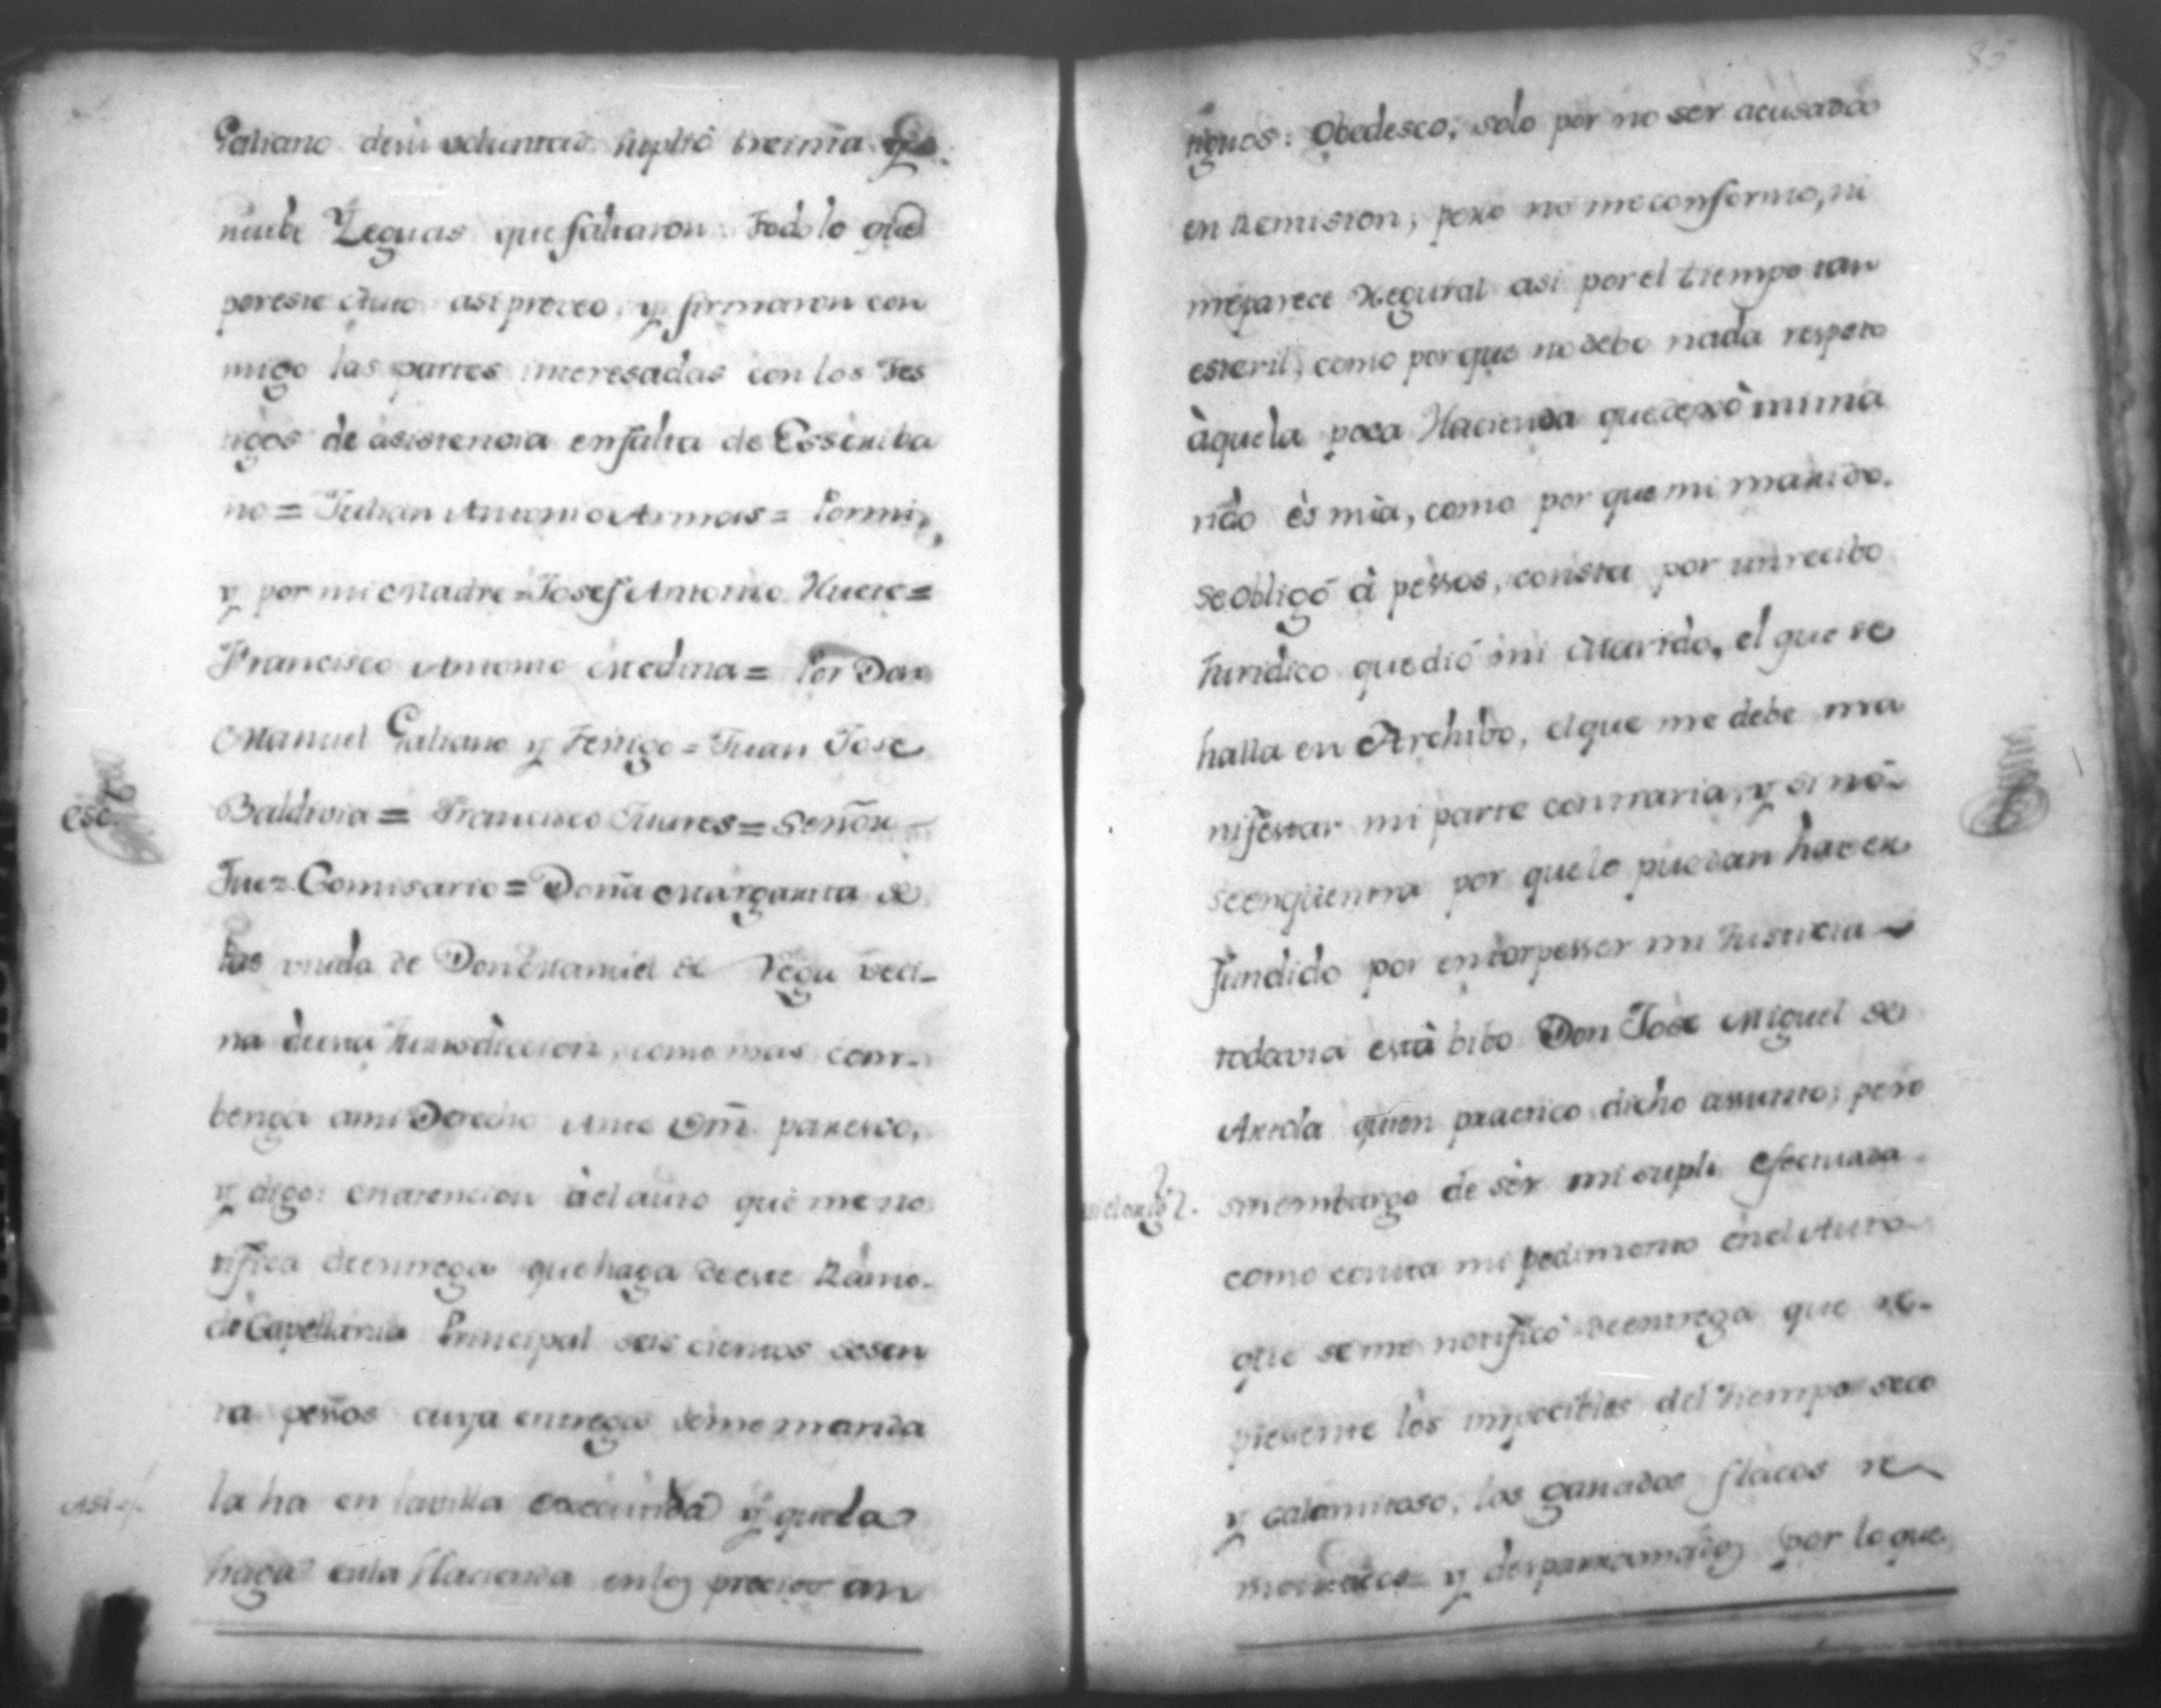 Galiano desu voluntad suplió treinta y
nuebe Yeguas que faltaron. Todo lo que
por este Auto asi proveo, y firmaron con
migo las partes interesadas con los Tes
tigos de asistencia en falta de Esscriba
no = Julian Antonio Armas = Por mi,
y por mi Madre = Josef Antonio Huete =
Francisco Antonio Medina = Por Don
Manuel Galiano y Testigo = Juan Jose
Baldivia = Francisco Juares = Señor
Juez Comisario = Doña Margarita de
viuda de Don Manuel de Vega veci-
na desta Jurisdiccion, como mas com-
benga ami Derecho Ante Vm̃. paresco,
y digo: en atencion àel auto que me no
tifica de entrega que haga de este Ramo
de Capellania Principal seis cientos sesen
ta pessos cuya entrega seme manda
Asi
la ha en la villa y que la
haga en la Hacienda en los precios an
85
tiguos: Obedesco, solo por no ser acusada
en Remision, pero no me conformo, ni
me parece Regural asi por el tiempo tan
esteril, como por que no debo nada respeto
àquela poca Hacienda que dexò mi ma
rido ès mia, como por que mi marido.
se obligó à pessos, consta por un recibo
Juridico que dió mi Marido, el que se
halla en Archibo, el que me debe ma
nifestar mi parte contraria, y si nó
se enquentra por que lo puedan haver
fundido por entorpesser mi Justicia
todavia està bibo Don Jose Miguel de
Areola quien practico dicho assunto; pero
sinembargo de sèr mi supli efectuada
como consta mi pedimento en el Auto
que se me notificó de entrega que re-
presente los impocibles del tiempo seco
y calamitoso, los ganados flacos
y desparramados por lo que